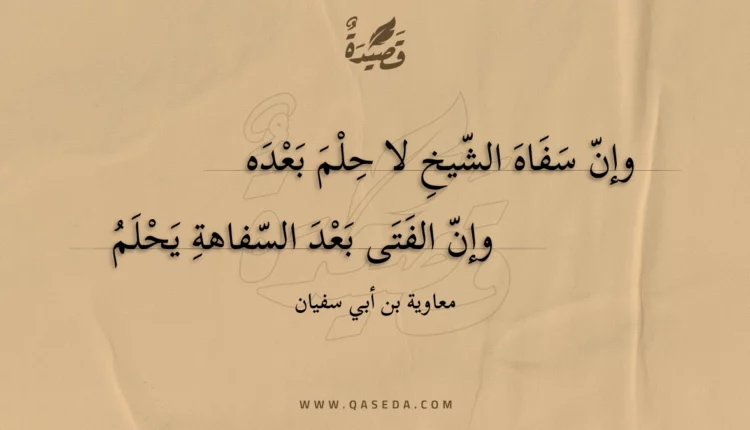 قَصِيدَةٌ
وإنّ سَفَاهَ الشّيخِ لا حِلْمَ بَعْدَه
وإنّ الفَتَى بَعْدَ السّفاهةِ يَحْلَمُ
معاوية بن أبي سفيان
WWW.QASEDA.COM